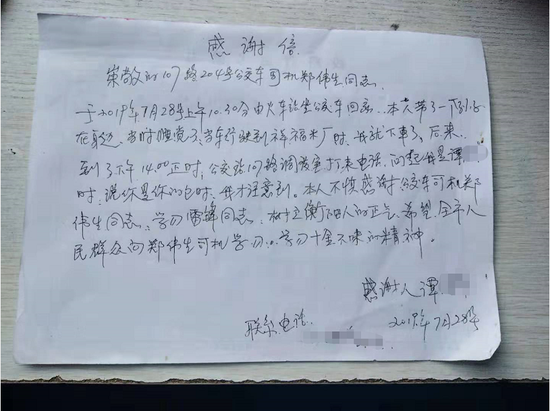 感谢信
崇敬的107路204号公交车司机郑伟生同志。
于2019年7月28号上午10.30分由火车站坐公交车回家。本人带了一下
在身边，当时睡觉了，当车行驶到祥福来厂时，我就下车了，后来
到了下午14.00正时，公交站107路调度室打来电话，问起你是谭
时，说你是你的包时，我才注意到。本人不慎感谢公交车司机郑
伟生同志。学习雷锋同志，树立衡阳人的正气，希望全市人
民群众向郑伟生司机学习。学习十金不昧的精神。
感谢人谭
联系电话。
2019年7月28号